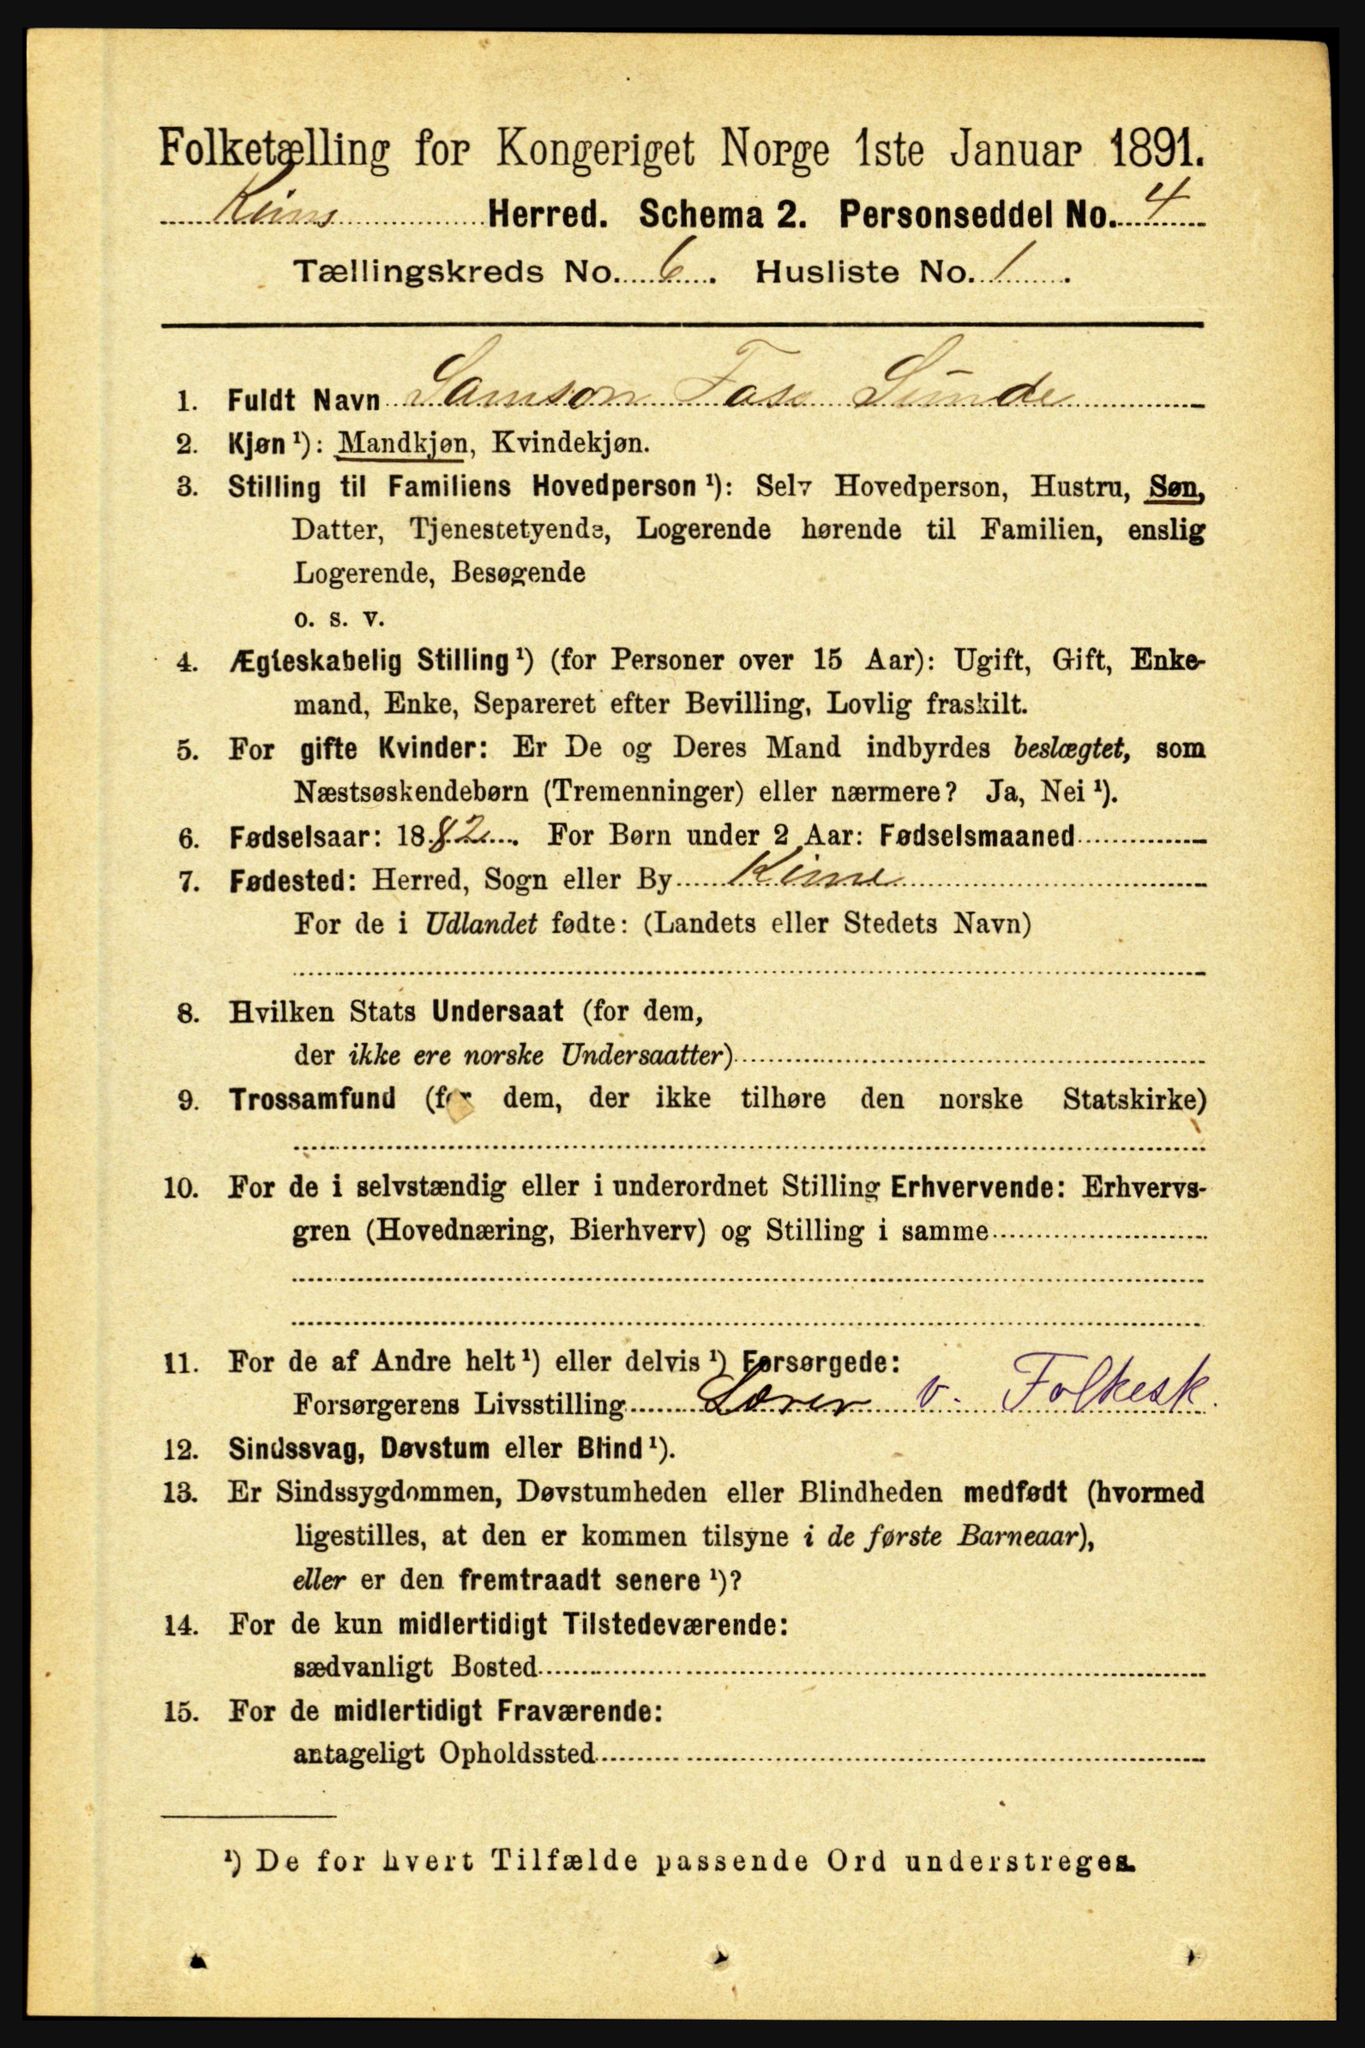 Folketælling for Kongeriget Norge 1ste Januar 1891.
Kinns Herred. Schema 2. Personseddel No. 4
Tællingskreds No. 6. Husliste No. 1.
1. Fuldt Navn Samson Sunde
2. Kjøn ¹): Mandkjøn, Kvindekjøn.
3. Stilling til Familiens Hovedperson ¹): Selv Hovedperson, Hustru, Søn,
Datter, Tjenestetyende, Logerende hørende til Familien, enslig
Logerende, Besøgende
o. s. v.
4. Ægteskabelig Stilling ¹) (for Personer over 15 Aar): Ugift, Gift, Enke-
mand, Enke, Separeret efter Bevilling, Lovlig fraskilt.
5. For gifte Kvinder: Er De og Deres Mand indbyrdes beslægtet, som
Næstsøskendebørn (Tremenninger) eller nærmere? Ja, Nei ¹).
6. Fødselsaar: 1882. For Børn under 2 Aar: Fødselsmaaned
7. Fødested: Herred, Sogn eller By Kinn
For de i Udlandet fødte: (Landets eller Stedets Navn)
8. Hvilken Stats Undersaat (for dem,
der ikke ere norske Undersaatter)
9. Trossamfund (for dem, der ikke tilhøre den norske Statskirke)
10. For de i selvstændig eller i underordnet Stilling Erhvervende: Erhvervs-
gren (Hovednæring, Bierhverv) og Stilling i samme
11. For de af Andre helt ¹) eller delvis ¹) Forsørgede:
Forsørgerens Livsstilling Lærer v. Folkesk.
12. Sindssvag, Døvstum eller Blind ¹).
13. Er Sindssygdommen, Døvstumheden eller Blindheden medfødt (hvormed
ligestilles, at den er kommen tilsyne i de første Barneaar),
eller er den fremtraadt senere ¹)?
14. For de kun midlertidigt Tilstedeværende:
sædvanligt Bosted
15. For de midlertidigt Fraværende:
antageligt Opholdssted
¹) De for hvert Tilfælde passende Ord understreges.